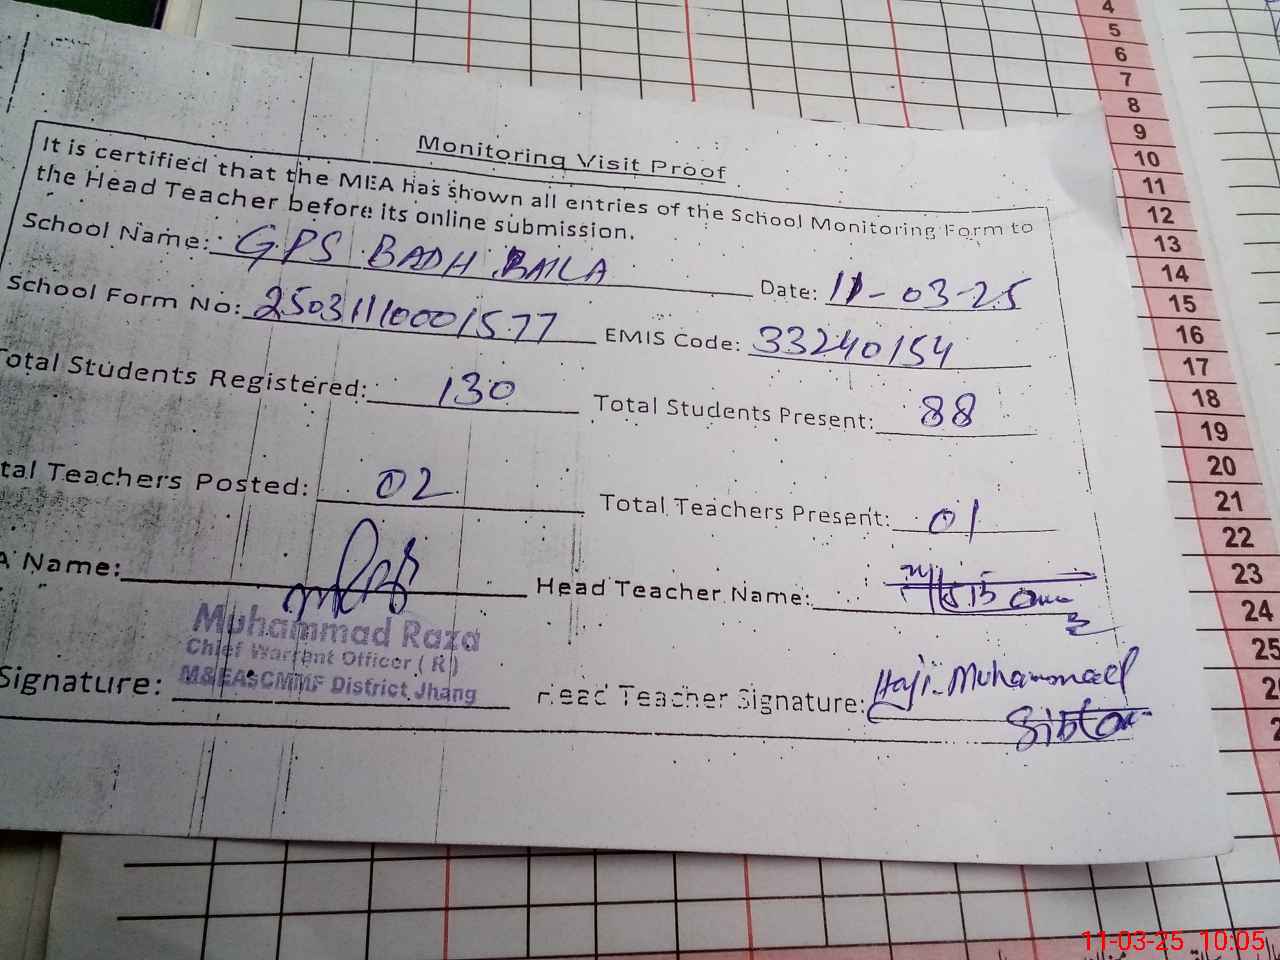 4
5
6
7
8
9
10
11
12
13
14
15
16
17
18
19
20
21
22
23
24
25
Monitoring Visit Proof
It is certified that the MEA has shown all entries of the School Monitoring Form to
the Head Teacher before its online submission.
School Name: GPS BADH BAILA Date: 11-03-25
School Form No: 25031110001577 EMIS Code: 33240154
otal Students Registered: 130 Total Students Present: 88
tal Teachers Posted: 02 Total Teachers Present: 01
A Name: Head Teacher Name:
Muhammad Raza
Chief Warrent Officer ( R )
M&EASCMMF District Jhang
Signature: Head Teacher Signature: Haji Muhammad
Sibtan
11-03-25 10:05